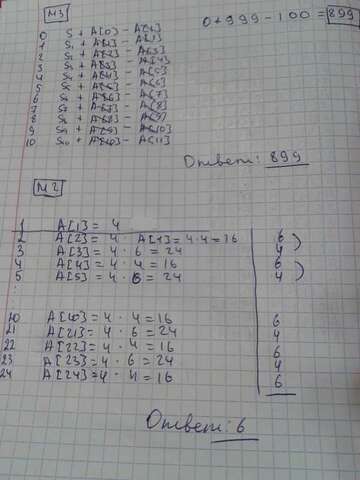 №3
0 + 999 - 100 = 899
0 S + A[0] - A[1]
1 S1 + A[1] - A[2]
2 S2 + A[2] - A[3]
3 S3 + A[3] - A[4]
4 S4 + A[4] - A[5]
5 S5 + A[5] - A[6]
6 S6 + A[6] - A[7]
7 S7 + A[7] - A[8]
8 S8 + A[8] - A[9]
9 S9 + A[9] - A[10]
10 S10 + A[10] - A[11]
Ответ: 899
№2
1 A[1] = 4
2 A[2] = 4 · A[1] = 4·4 = 16 6
3 A[3] = 4 · 6 = 24 4
4 A[4] = 4 · 4 = 16 6
5 A[5] = 4 · 6 = 24 4
A[20] = 4 · 4 = 16 6
21 A[21] = 4 · 6 = 24 4
22 A[22] = 4 · 4 = 16 6
23 A[23] = 4 · 6 = 24 4
24 A[24] = 4 · 4 = 16 6
Ответ: 6